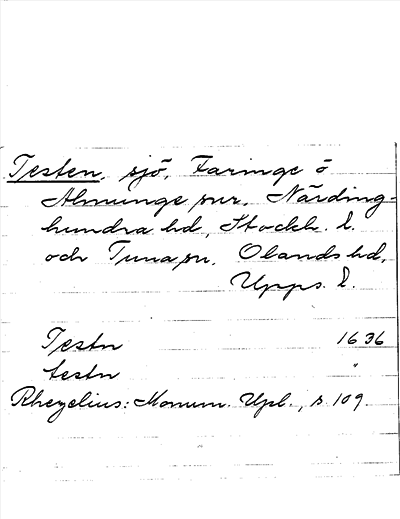 Testen, sjö, Faringe o
Almunge snr, Närding-
hundra hd, Stockh. l.
och Tuna sn, Olands hd,
Upps. l.
Testn 1636
testn "
Rhezelius: Monum. Upl., s. 109.